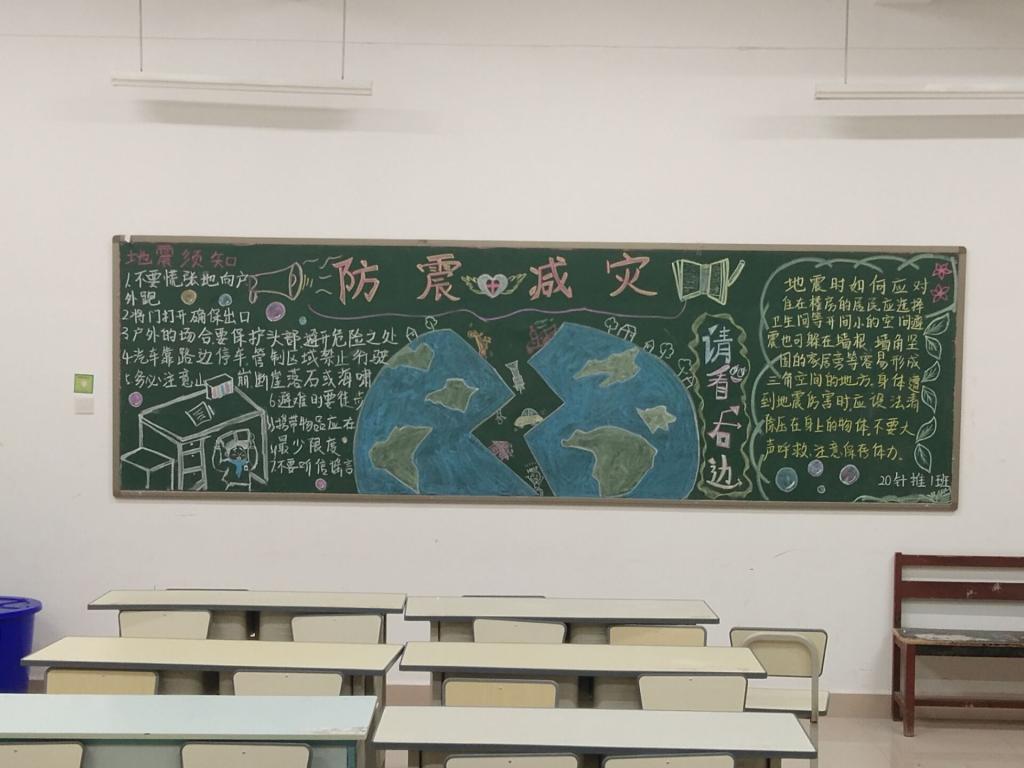 防震减灾
地震须知
1.不要慌张地向户
外跑
2.将门打开确保出口
3户外的场合要保护头部避开危险之处
4.汽车靠路边停车管制区域禁止行驶
5务必注意山崩断崖落石或海啸
6.避难时要徒步
携带物品应在
最少限度
7.不要听信谣言
请看右边
地震时如何应对
住在楼房的居民应选择
卫生间等开间小的空间避
震也可躲在墙根,墙角坚
固的家居旁等容易形成
三角空间的地方,身体遭
到地震伤害时,应设法清
除压在身上的物体,不要大
声呼救,注意保存体力.
20针推1班